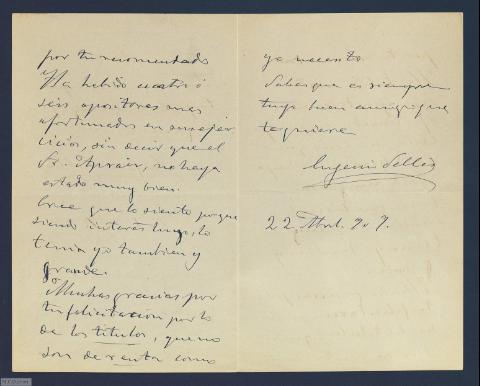 por tu recomendado
Ha habido cuatro ó
seis opositores mas
afortunados en sus ejer
cicios, sin decir que el
Sr. Apraiz, no haya
estado muy bien.
Cree que lo siento porque
siendo interés tuyo, lo
tenia yo tambien y
grande.
Muchas gracias por
tu felicitación por lo
de los títulos, que no
son de renta como
yo necesito
Sabes que es siempre
tuyo buen amigo que
te quiere
Eugenio Sellés
22 Abril 907.